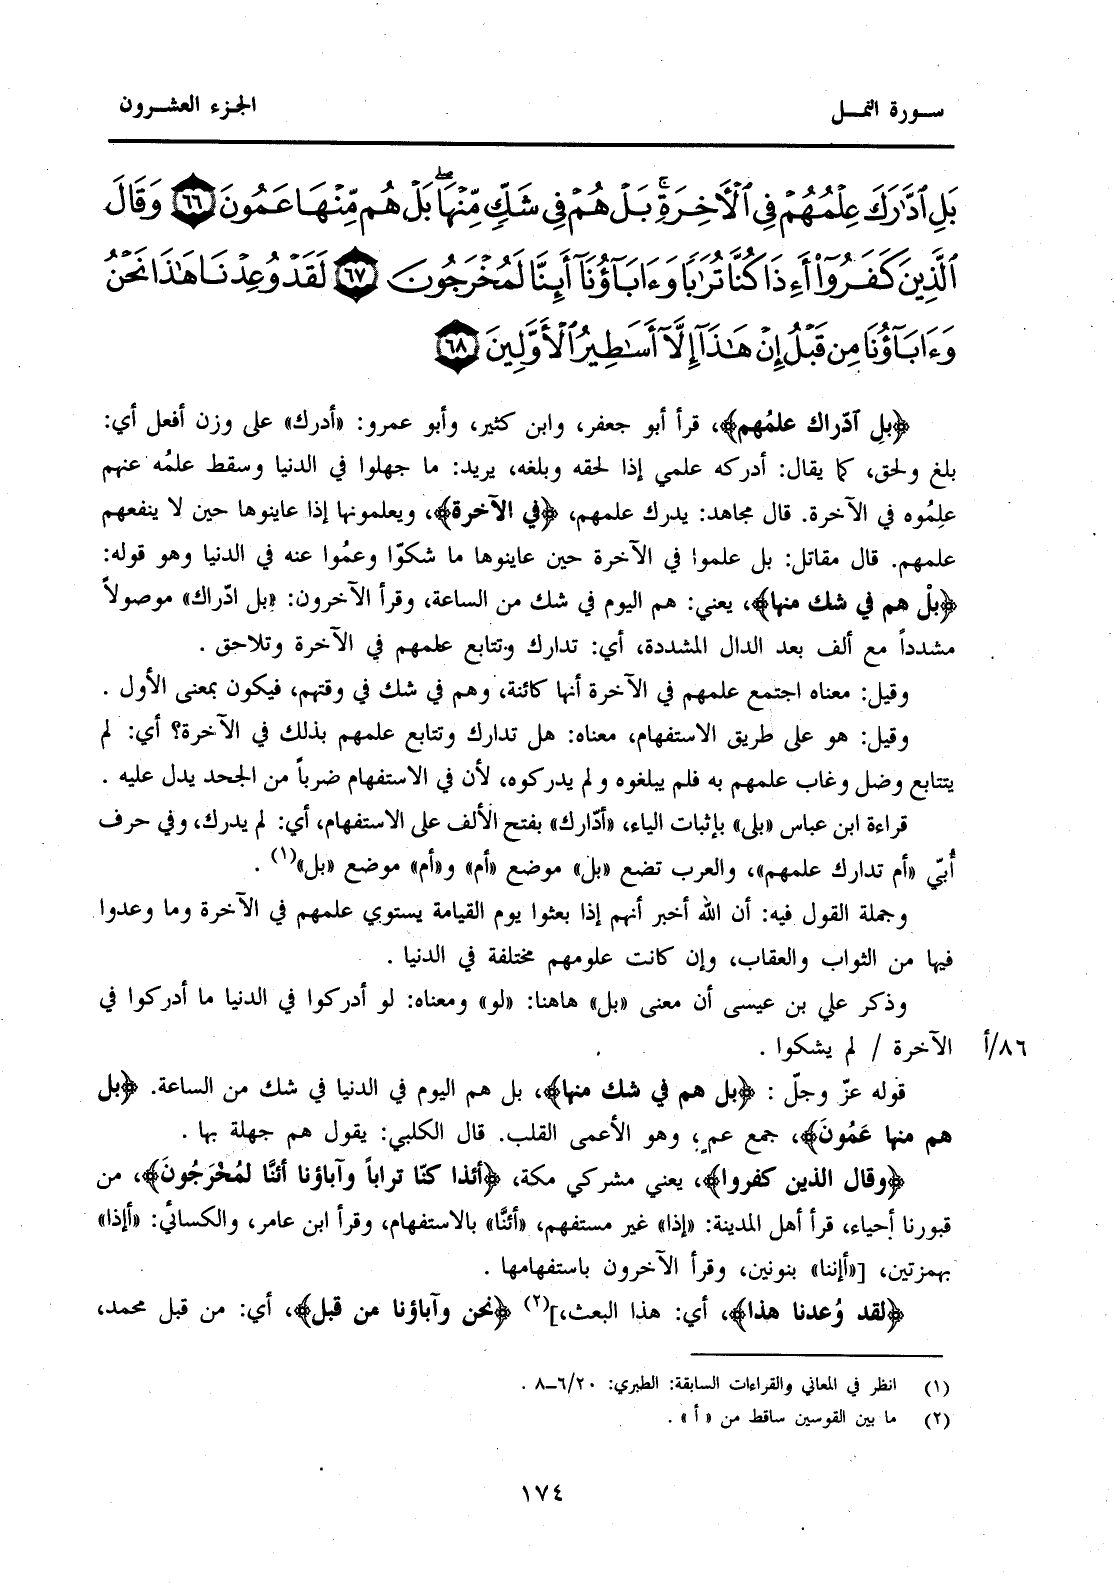 سورة النمل
الجزء العشرون
بَلِ ٱدَّٰرَكَ عِلْمُهُمْ فِى ٱلْأَخِرَةِ ۚ بَلْ هُمْ فِى شَكٍّ مِّنْهَا ۖ بَلْ هُم مِّنْهَا عَمُونَ ٦٦ وَقَالَ
ٱلَّذِينَ كَفَرُوٓاْ أَءِذَا كُنَّا تُرَٰبًا وَءَابَآؤُنَآ أَئِنَّا لَمُخْرَجُونَ ٦٧ لَقَدْ وُعِدْنَا هَٰذَا نَحْنُ
وَءَابَآؤُنَا مِن قَبْلُ إِنْ هَٰذَآ إِلَّآ أَسَٰطِيرُ ٱلْأَوَّلِينَ ٦٨
﴿بلِ آدّراك علمُهم﴾، قرأ أبو جعفر، وابن كثير، وأبو عمرو: «أدرك» على وزن أفعل أي:
بلغ ولحق، كما يقال: أدركه علمي إذا لحقه وبلغه، يريد: ما جهلوا في الدنيا وسقط علمُه عنهم
علِمُوه في الآخرة. قال مجاهد: يدرك علمهم، ﴿في الآخرة﴾، ويعلمونها إذا عاينوها حين لا ينفعهم
علمهم. قال مقاتل: بل علموا في الآخرة حين عاينوها ما شكوّا وعمُوا عنه في الدنيا وهو قوله:
﴿بلْ هم في شك منها﴾، يعني: هم اليوم في شك من الساعة، وقرأ الآخرون: «بل ادّراك» موصولاً
مشدداً مع ألف بعد الدال المشددة، أي: تدارك وتتابع علمهم في الآخرة وتلاحق .
وقيل: معناه اجتمع علمهم في الآخرة أنها كائنة، وهم في شك في وقتهم، فيكون بمعنى الأول .
وقيل: هو على طريق الاستفهام، معناه: هل تدارك وتتابع علمهم بذلك في الآخرة؟ أي: لم
يتتابع وضل وغاب علمهم به فلم يبلغوه ولم يدركوه، لأن في الاستفهام ضرباً من الجحد يدل عليه .
قراءة ابن عباس «بلى» بإثبات الياء، «أدّارك» بفتح الألف على الاستفهام، أي: لم يدرك، وفي حرف
أُبّي «أم تدارك علمهم»، والعرب تضع «بل» موضع «أم» و«أم» موضع «بل»(١) .
وجملة القول فيه: أن الله أخبر أنهم إذا بعثوا يوم القيامة يستوي علمهم في الآخرة وما وعدوا
فيها من الثواب والعقاب، وإن كانت علومهم مختلفة في الدنيا .
وذكر علي بن عيسى أن معنى «بل» هاهنا: «لو» ومعناه: لو أدركوا في الدنيا ما أدركوا في
٨٦/أ الآخرة / لم يشكوا .
قوله عزّ وجلّ : ﴿بل هم في شك منها﴾، بل هم اليوم في الدنيا في شك من الساعة. ﴿بل
هم منها عَمُونَ﴾، جمع عمٍ، وهو الأعمى القلب. قال الكلبي: يقول هم جهلة بها .
﴿وقال الذين كفروا﴾، يعني مشركي مكة، ﴿أئذا كنّا تراباً وآباؤنا أئنَّا لمُخْرَجُونَ﴾، من
قبورنا أحياء، قرأ أهل المدينة: «إذا» غير مستفهم، «أئنَّا» بالاستفهام، وقرأ ابن عامر، والكسائي: «أإذا»
بهمزتين، [«أإننا» بنونين، وقرأ الآخرون باستفهامها .
﴿لقد وُعدنا هذا﴾، أي: هذا البعث،](٢) ﴿نحن وآباؤنا من قبل﴾، أي: من قبل محمد،
(١) انظر في المعاني والقراءات السابقة: الطبري: ٢٠/٦ــ٨ .
(٢) ما بين القوسين ساقط من «أ» .
١٧٤